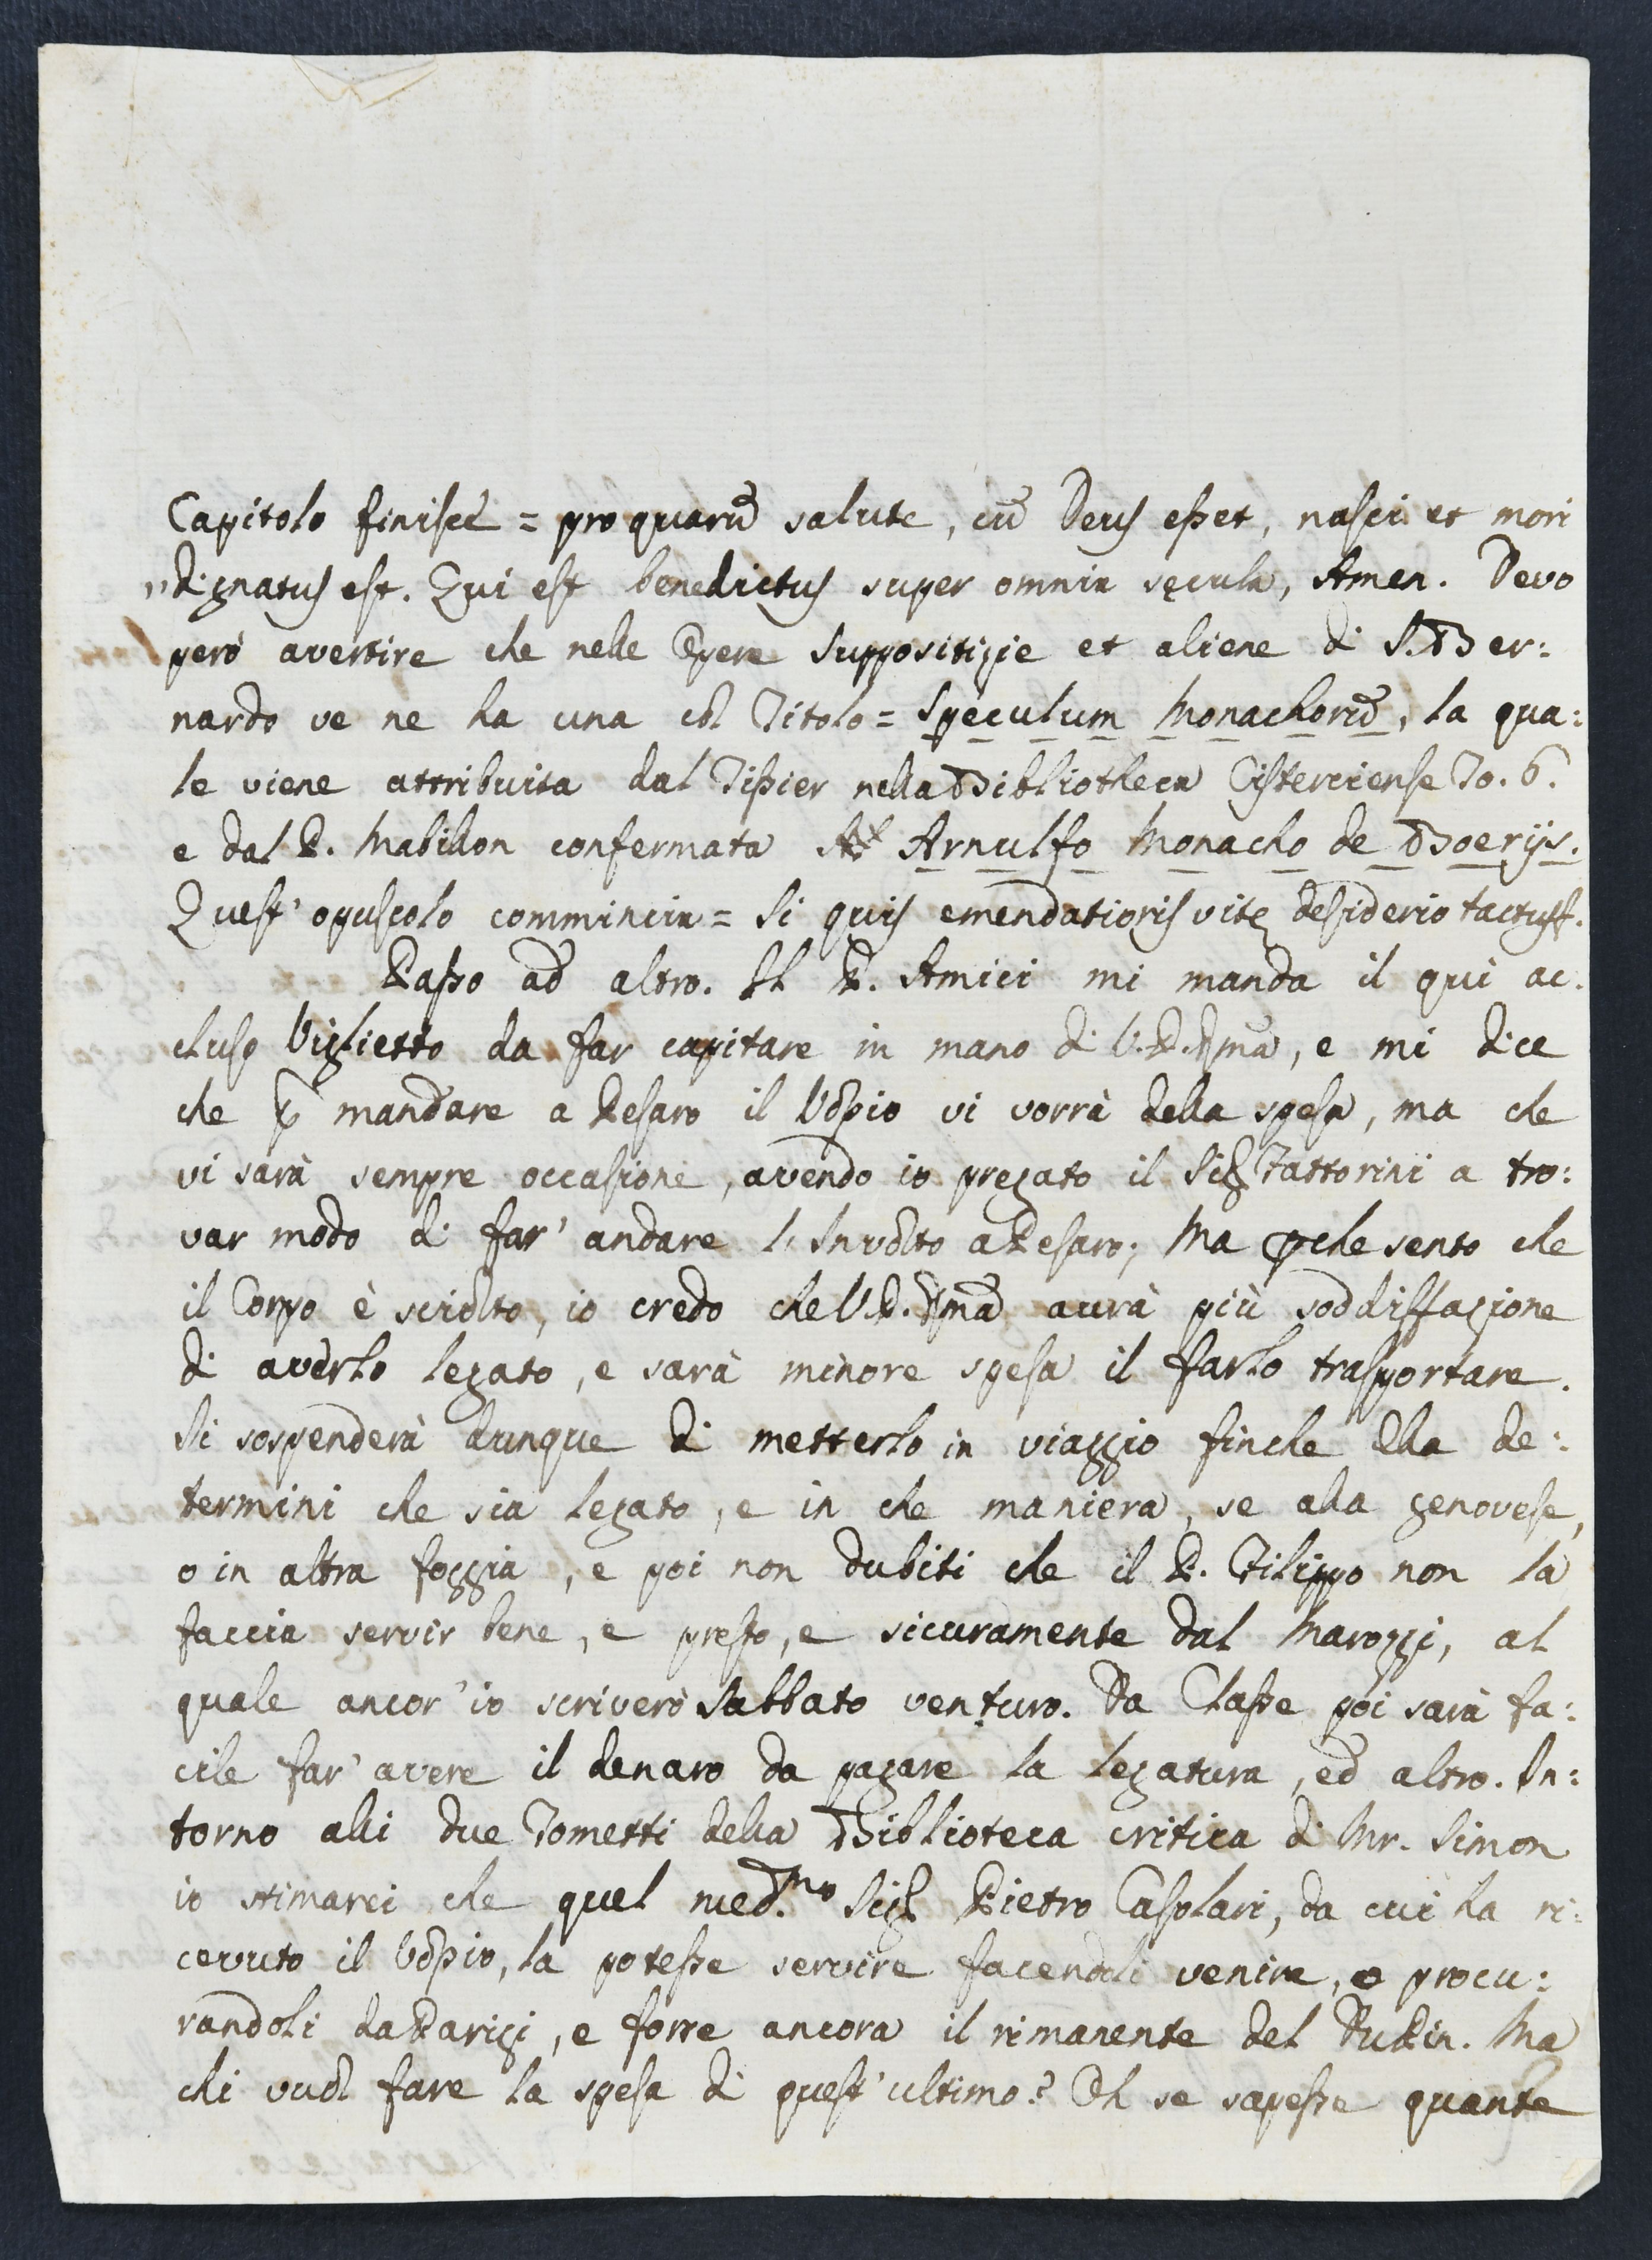 Capitolo finisce = pro quarũ salute, cũ Deus esset, nasci et mori
" dignatus est. Qui est benedictus super omnia sęcula, Amen. Devo
però avertire che nelle Opere Supposititzie et aliene di S. Ber:
nardo ve ne ha una col Titolo = Speculum Monachorũ, la qua:
le viene attribuita dal Tissier nella Bibliotheca Cisterciense To. 6.
e dal P. Mabillon confermata Arnulfo Monacho de Boerijs.
Quest' opuscolo commincia = Si quis emendatioris vitę desiderio tactus
Passo ad altro. Il P. Amici mi manda il qui ac:
cluso Viglietto da far capitare in mano di V. P. Rma, e mi dice
che p mandare a Pesaro il Vossio vi vorrà della spesa, ma che
vi sarà sempre occasione, avendo io pregato il Sig Fattorini a tro:
var modo di far' andare l'Involto a Pesaro; Ma pche sento che
il Corpo è sciolto, io credo che V. P. Rma avrà più soddisfazione
di averlo legato, e sarà minore spesa il farlo trasportare.
Si sospenderà dunque di metterlo in viaggio finche Ella de:
termini che sia legato, e in che maniera, se alla genovese,
o in altra foggia, e poi non dubiti che il P. Filippo non la
faccia servir bene, e presto, e sicuramente dal Marozzi, al
quale ancor' io scriverò Sabbato venturo. Da Classe poi sarà fa:
cile far' avere il denaro da pagare la legatura, ed altro. In:
torno alli due Tometti della Biblioteca critica di Mr. Simon
io stimarei che quel med.mo Sig Pietro Casolari, da cui ha ri:
cevuto il Vossio, la potesse servire facendoli venire, o procu:
randoli da Parigi, e forse ancora il rimanente del DuPin. Ma
chi vuol fare la spesa di quest' ultimo? Oh se sapesse quante